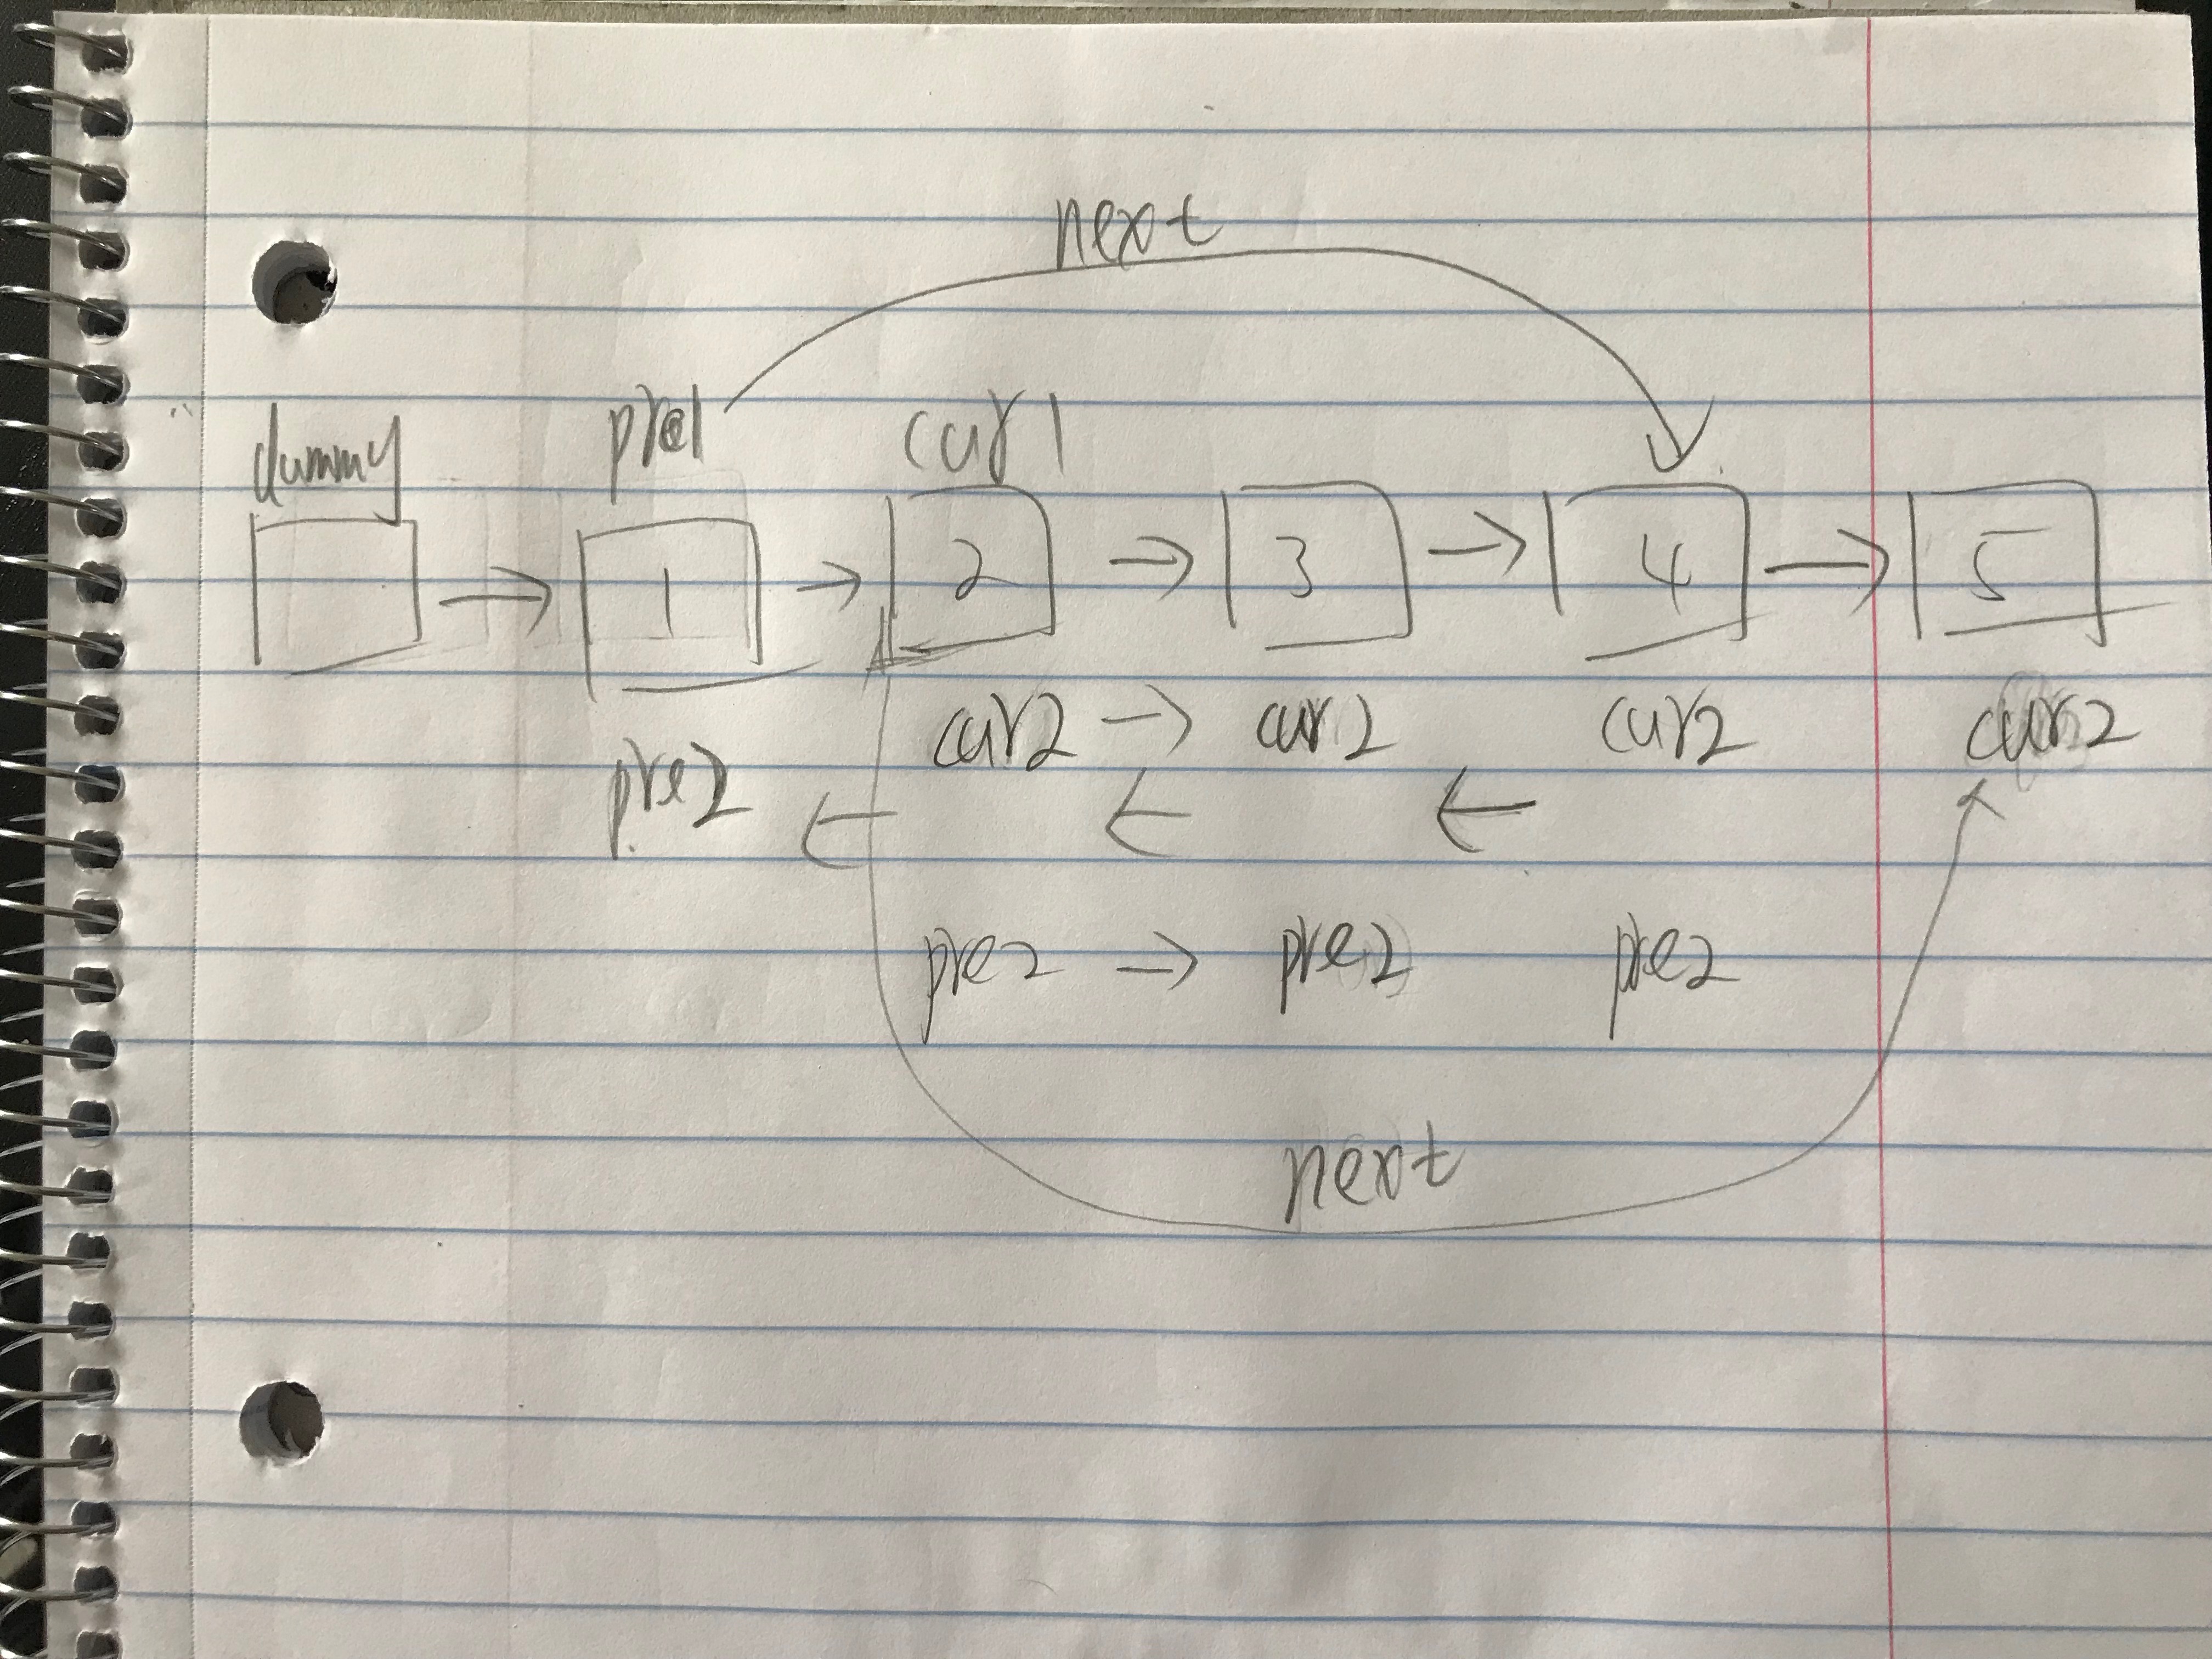 next
dummy pre1 cur1
1 → 2 → 3 → 4 → 5
cur2 → cur2 cur2 cur2
pre2 ← ← ←
pre2 → pre2 pre2
next